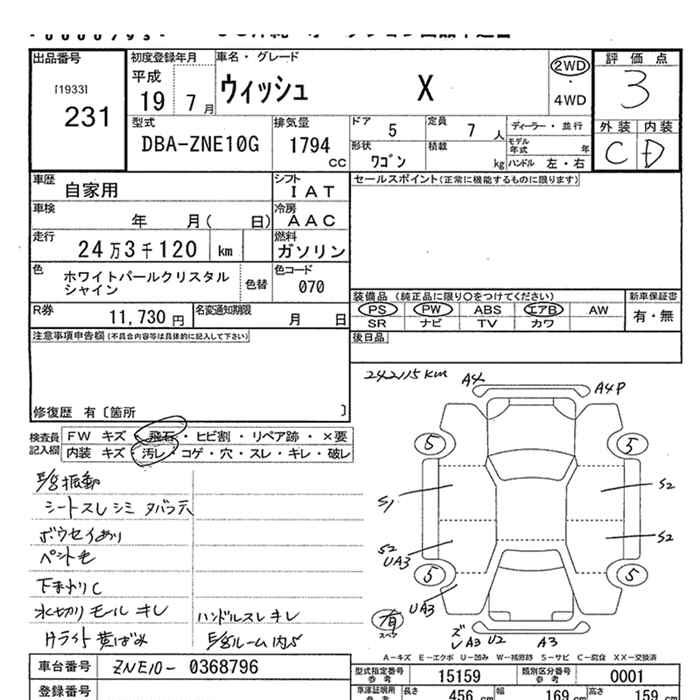 出品番号
[1933]
231
初度登録年月
平成
19 7 月
車名・グレード
ウィッシュ X
2WD
・
4WD
評 価 点
3
外 装 内 装
C D
型式
DBA-ZNE10G
排気量
1794
CC
ドア
5
定員
7 人
形状
ワゴン
積載
kg
ディーラー・並行
モデル
年式 年
ハンドル 左・右
車歴
自家用
シフト
I A T
車検
年 月( 日)
冷房
A A C
走行
24 万 3 千 120 km
燃料
ガソリン
色
ホワイトパールクリスタル
シャイン
色替
色コード
070
R券
11,730 円
名変通知期限
月 日
セールスポイント(正常に機能するものに限ります)
装備品 (純正品に限り○をつけてください)
新車保証書
PS PW ABS エアB AW
有・無
SR ナビ TV カワ
後日品
注意事項申告欄(不具合内容等は具体的に記入して下さい)
修復歴 有 〔箇所 〕
検査員
記入欄
FW キズ ・ 飛石 ・ ヒビ割 ・ リペア跡 ・ ×要
内装 キズ ・ 汚レ ・ コゲ ・ 穴 ・ スレ ・ キレ ・ 破レ
シートスレ シミ タバコ穴
ボウセイあり
下まわりC
水切りモール キレ
ハンドルスレ キレ
Hライト 黄ばみ
242115 km
A4
A4P
5
5
S1
S2
S2
UA3
S2
5
5
UA3
有
スペア
ズレ
UA3
U2
A3
A-キズ E-エクボ U-凹み W-補修跡 S-サビ C-腐食 XX-交換済
車台番号
ZNE10- 0368796
登録番号
型式指定番号
参考
15159
類別区分番号
参考
0001
車庫証明用
参考
長さ
456 cm
幅
169 cm
高さ
159 cm